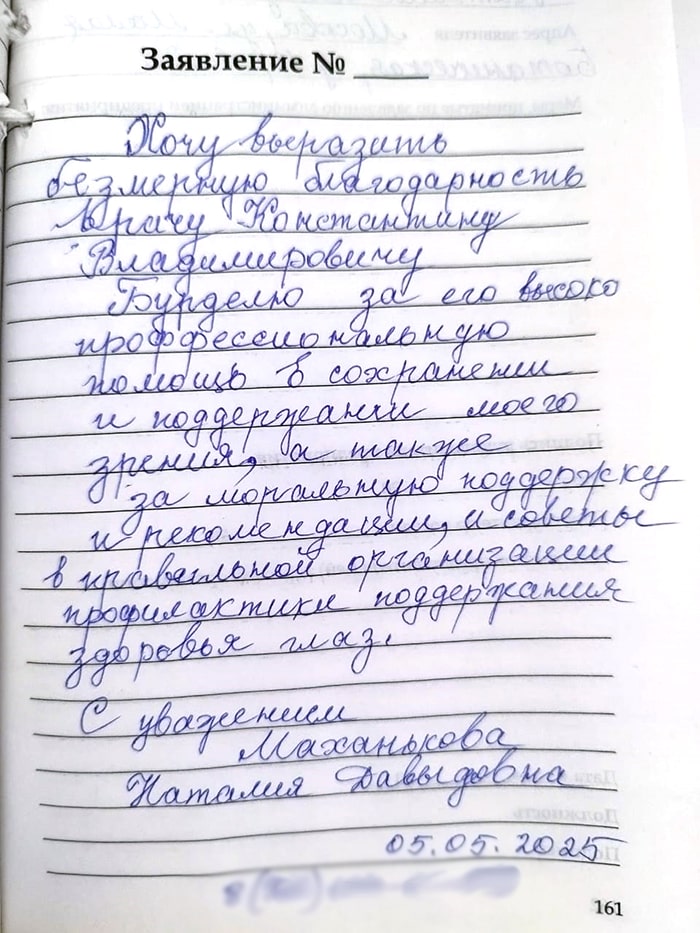 Адрес заявителя Москва, ул. Малая
Ботаническая,
Заявление № ____
Хочу выразить
безмерную благодарность
Врачу Константину
Владимировичу
Бурделю за его высоко
проффессиональную
помощь в сохранении
и поддержании моего
зрения, а также
за моральную поддержку
и рекомендации, и советы
в правильной организации
профилактики поддержания
здоровья глаз.
С уважением
Маханькова
Наталия Давыдовна
Дата
Должность
05.05.2025
161